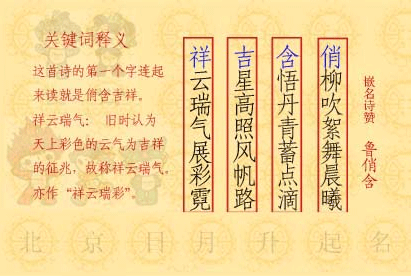 关键词释义
这首诗的第一个字连起
来读就是俏含吉祥。
祥云瑞气： 旧时认为
天上彩色的云气为吉祥
的征兆，故称祥云瑞气。
亦作“祥云瑞彩”。
嵌名诗赞 鲁俏含
俏柳吹絮舞晨曦
含悟丹青蓄点滴
吉星高照风帆路
祥云瑞气展彩霓
北京日月升起名